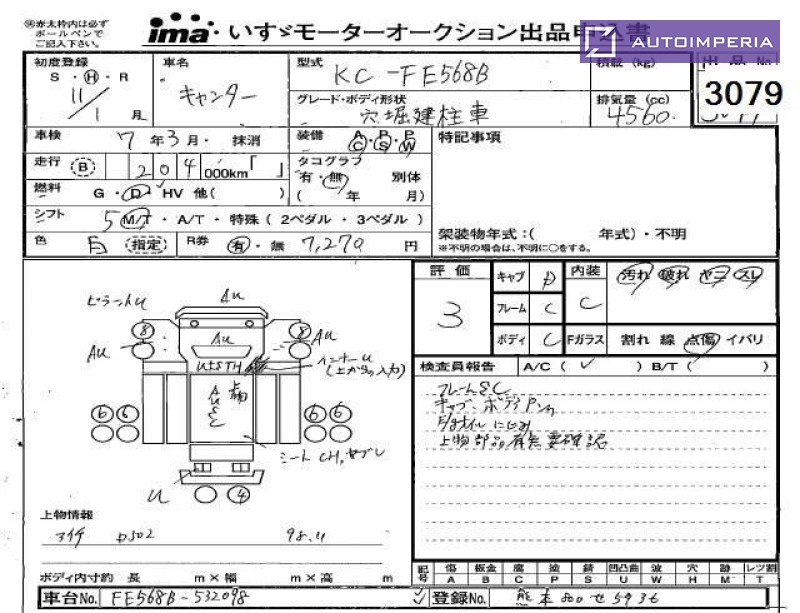 ㊟赤太枠内は必ず
ボールペンで
ご記入下さい。
ima いすゞモーターオークション出品申込書
AUTOIMPERIA
出品No
3079
初度登録
S・H・R
11/1月
車名
キャンター
型式
KC-FE568B
グレード・ボディ形状
穴堀建柱車
積載 (kg)
排気量 (cc)
4560
車検 7年3月・ 抹消
装備 A/C P/S P/W
特記事項
走行 B 204 000km「 」
タコグラフ
有・無 別体
( 年 月)
燃料 G・D・HV 他( )
シフト 5 M/T・A/T・特殊(2ペダル・3ペダル)
架装物年式:( 年式)・不明
※不明の場合は、不明に○をする。
色 白 (指定)
R券 有・無 7,270 円
評価 3
キャブ D
フレーム C
ボディ C
内装 C
汚れ 破れ ヤニ スレ
Fガラス 割れ 線 点傷 イバリ
検査員報告 A/C ( ✓ ) B/T ( )
フレームSC
キャブ・ボディPハ
上物部品有無要確認
ピラートU
AU
8
AU
8
AU
AU
インナーU
(上からの入力)
6 6
6 6
シートCH,ヤブレ
U
4
上物情報
アイチ D502 98.11
ボディ内寸約 長 m×幅 m×高 m
記号 傷 板金 腐 塗 錆 凹凸曲 波 穴 跡 レツ割
A B C P S U W H M T
車台No. FE568B-532098
登録No. 熊本800せ5936